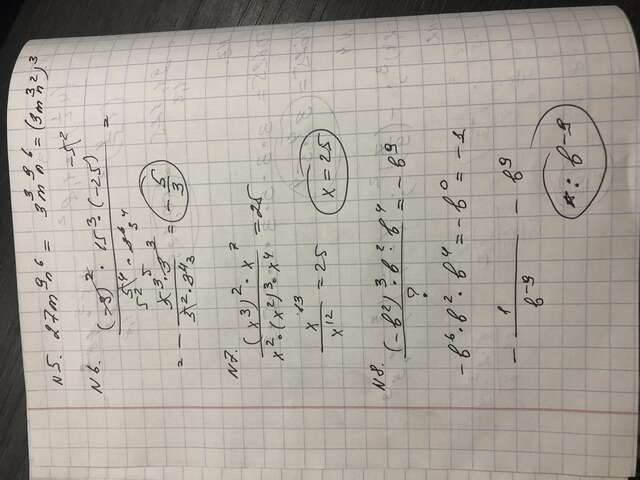 N5. 27m⁹n⁶ = 3³m⁹n⁶ = (3m³n²)³
N6.
-5²
(-3)² · 15³ · (-25)
=
5⁴ · 3⁶ 3⁴
5²
= - 5³ · 3³ / 5² · 3⁴ = - 5/3
N7.
(x³)² · x⁷ / x² · (x²)³ · x⁴ = 25
x¹³ / x¹² = 25 x = 25
N8.
(-b²)³ · b² · b⁴ / ? = - b⁹
-b⁶ · b² · b⁴ = -b⁰ = -1
- 1 / b⁻⁹ - b⁹
: b⁻⁹